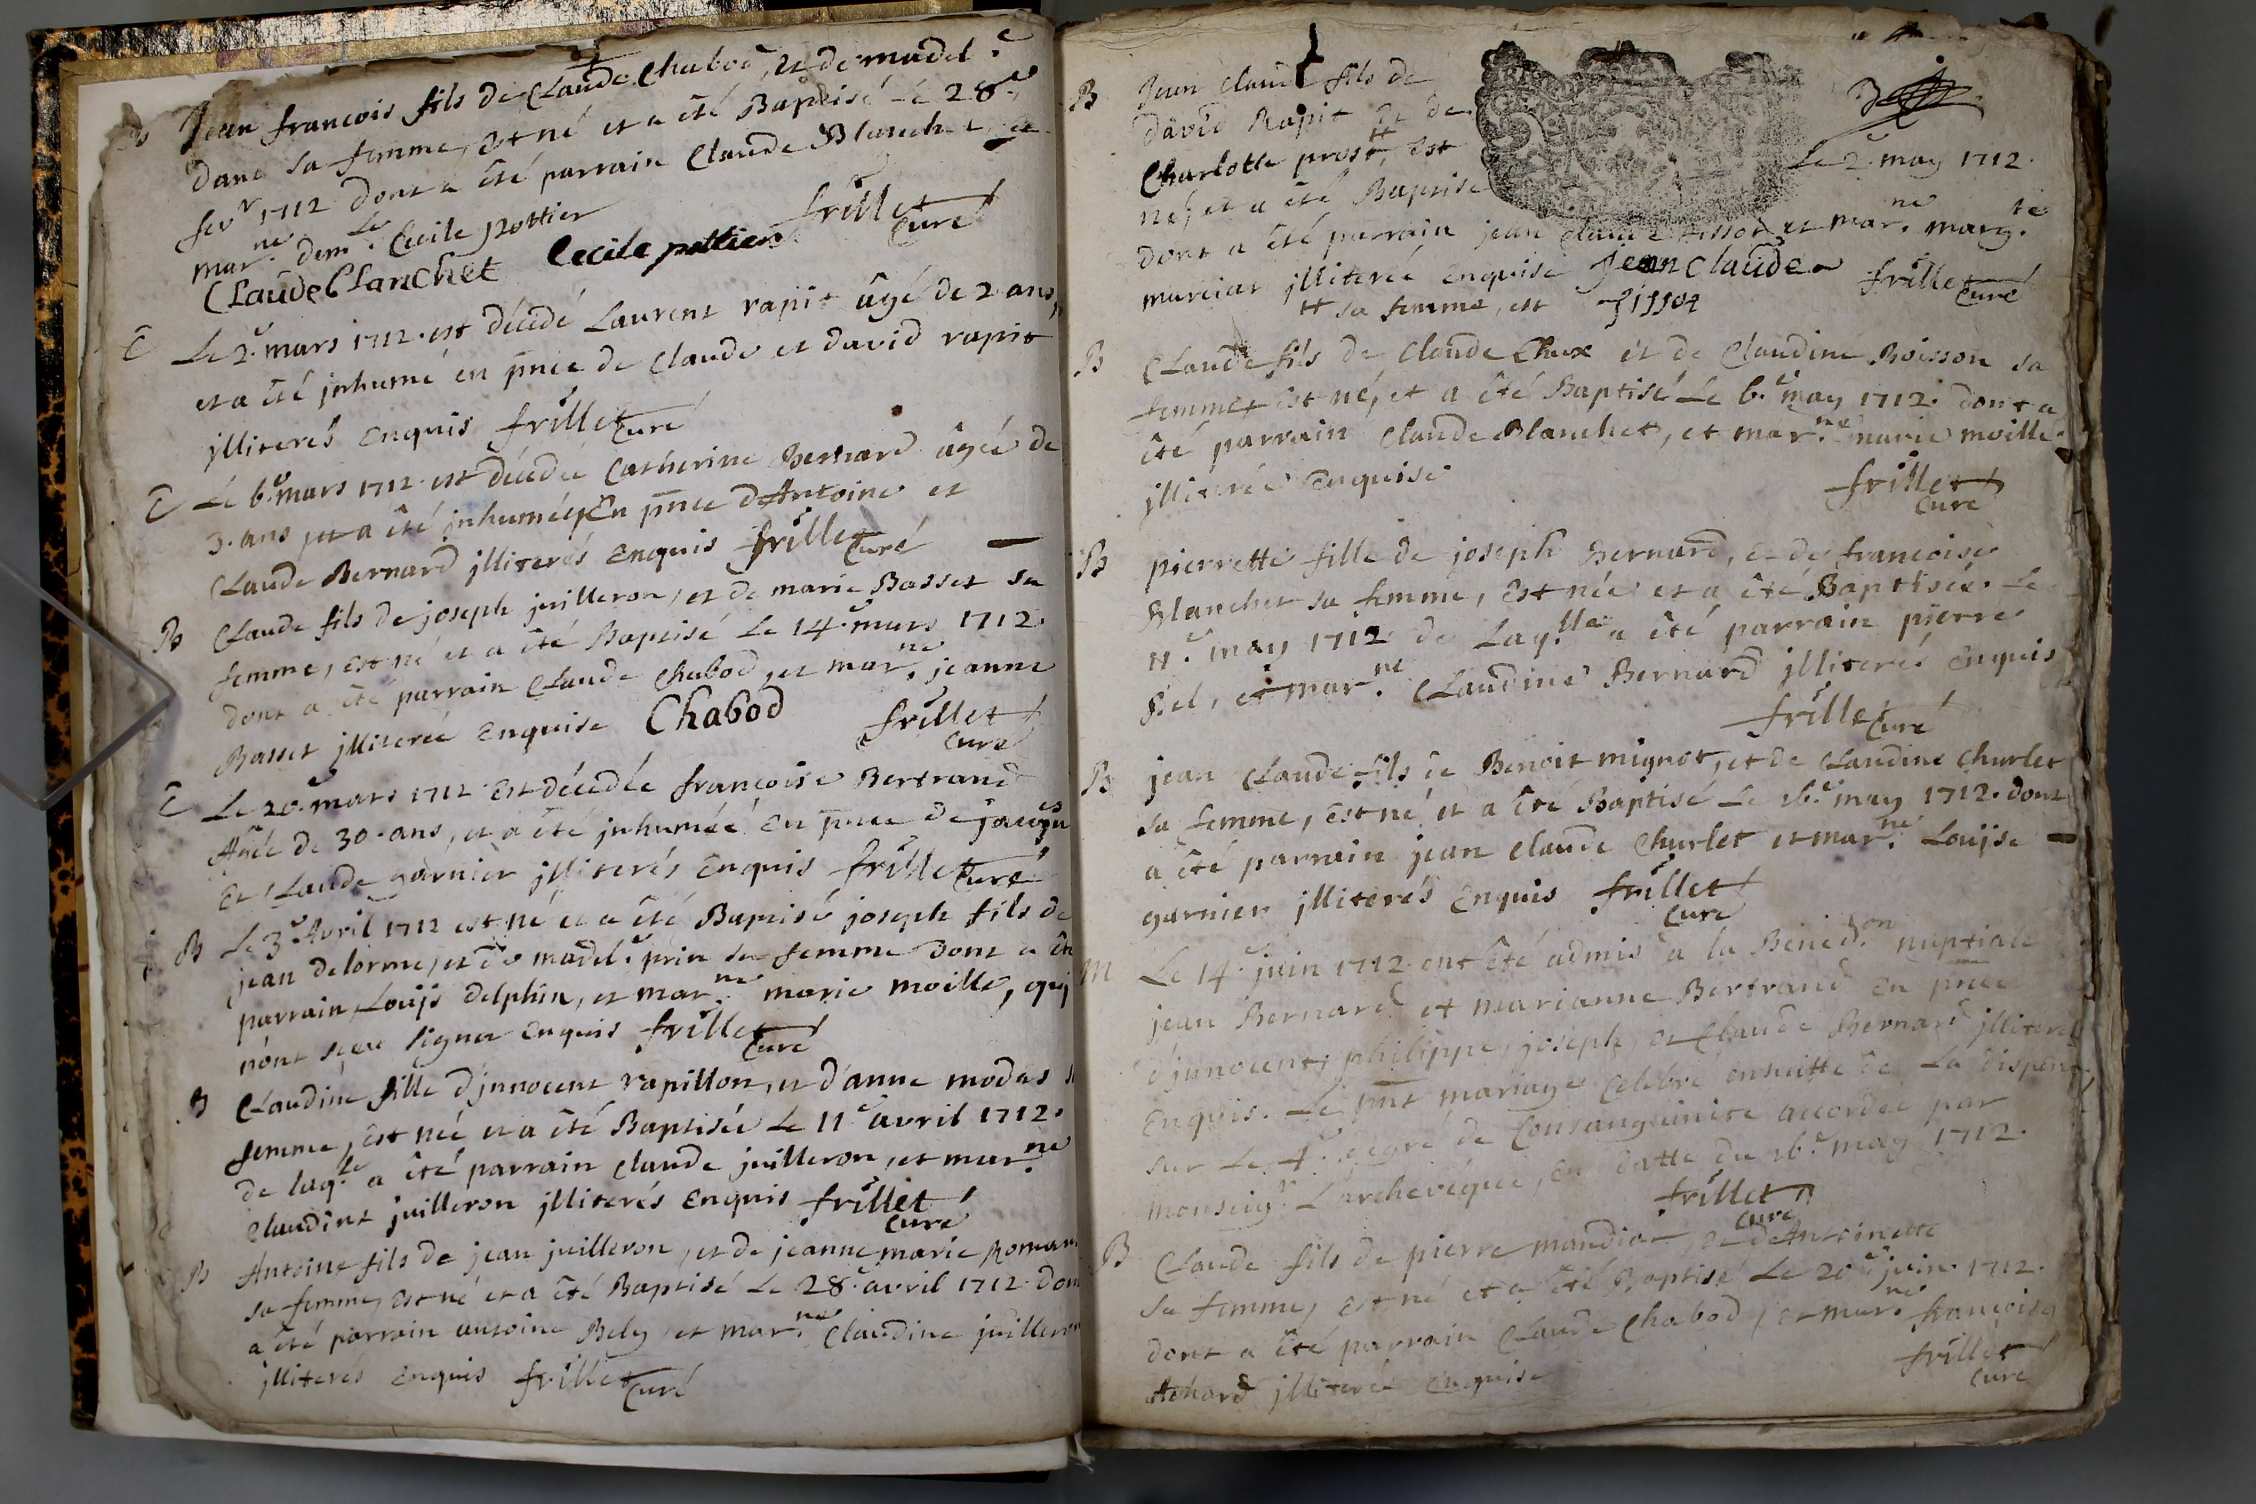 B Jean francois fils de Claude Chabod, et de madel.e
Dane sa femme, est né et a été Baptisé le 28.e
fevr 1712 dont a été parrain Claude Blanchet, et
mar.ne dem.le Cecile pottier frillet
Claude blanchet Cecile pottier Curé
E Le 2.e mars 1712. est décédé Laurent rapit âgé de 2 ans,
et a été jnhumé en pnce de Claude et david rapit
jlliterés Enquis frillet Curé
E Le 6.e mars 1712. est décédée Catherine Bernard âgée de
3. ans, et a été jnhumée En pnce d'Antoine et
Claude Bernard jlliterés Enquis frillet Curé
B Claude fils de joseph juilleron, et de marie Basset sa
femme, est né et a été Baptisé Le 14.e mars 1712.
dont a été parrain Claude Chabod, et mar.ne jeanne
Basset jlliterée Enquise Chabod frillet
Curé
E Le 20.e mars 1712 Est décédée françoise Bertrand
Agée de 30. ans, et a été jnhumée En pnce de jacques
Et Claude garnier jlliterés Enquis frillet Curé
B Le 3.e Avril 1712 est né et a été Baptisé joseph fils de
jean delorme, et de madel.e prin sa femme dont a été
parrain Louijs delphin, et mar.ne marie moille, qui
n'ont sceu signer Enquis frillet Curé
B Claudine fille d'jnnocent rapillon, et d'anne modas sa
femme, est née et a été Baptisée Le 11.e avril 1712.
de laq.le a été parrain Claude juilleron, et mar.ne
Claudine juilleron jlliterés Enquis frillet
Curé
B Antoine fils de jean juilleron, et de jeanne marie Roman
sa femme, est né et a été Baptisé Le 28.e avril 1712. dont
a été parrain antoine Bely, et mar.ne Claudine juilleron
jlliterés Enquis frillet Curé
B Jean Claude fils de
david Rapit et de
Charlotte prost, # est
né, et a été Baptisé Le 2.e may 1712.
dont a été parrain jean claude tissot et mar.ne marg.te
marciat jlliterée Enquise Jean Claude frillet
# sa femme, est tissot Curé
B Claude fils de Claude Chux et de Claudine Boisson sa
femme, est né, et a été Baptisé Le 6.e may 1712. dont a
été parrain Claude Blanchet, et mar.ne marie moille.
jlliterée Enquise frillet
Curé
B pierrette fille de joseph Bernard, et de françoise
Blanchet sa femme, Est née et a été Baptisée. Le
11.e may 1712 de Laq.lle a été parrain pierre
Bel, et mar.ne Claudine Bernard jlliterés Enquis
frillet Curé
B jean Claude fils de Benoit mignot, et de Claudine Churlet
sa femme, Est né et a été Baptisé Le 16.e may 1712. dont
a été parrain jean Claude Churlet et mar.ne Louijse
garnier jlliterés Enquis frillet
Curé
M Le 14.e juin 1712. ont été admis a la Bened.on nuptiale
jean Bernard et marianne Bertrand En pnce
d'jnnocent, philippe, joseph, et Claude Bernard jlliterés
Enquis. Le pnt mariage Celebré ensuitte de La dispense
sur Le 4.e degré de Consanguinité accordée par
monseig.r L'archevéque, En datte du 16.e may 1712.
frillet
Curé
B Claude fils de pierre mandiat, et d'Antoinette
sa femme, est né et a été Baptisé Le 20.e juin 1712.
dont a été parrain Claude Chabod, et mar.ne françoise
Achard jlliterée Enquise frillet
Curé